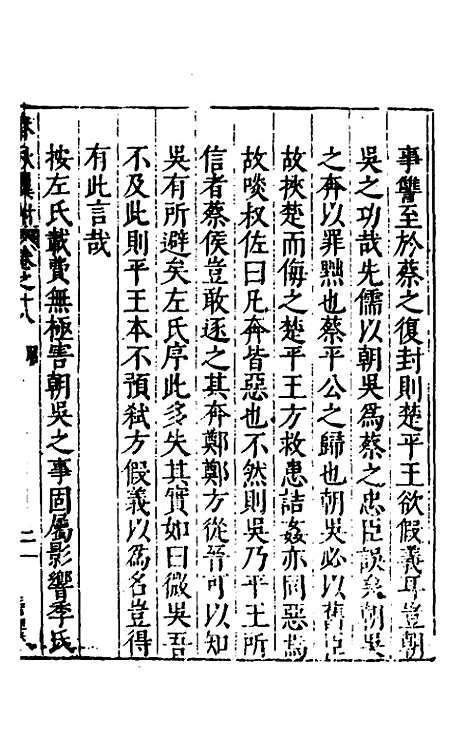 事讐至於蔡之復封則楚平王欲假義耳豈朝
吳之功哉先儒以朝吳爲蔡之忠臣誤矣朝吳
之奔以罪黜也蔡平公之歸也朝吳必以舊臣
故挾楚而侮之楚平王方救患詰姦亦同惡焉
故啖叔佐曰凡奔皆惡也不然則吳乃平王所
信者蔡侯豈敢逐之其奔鄭鄭方從晉可以知
吳有所避矣左氏序此多失其實如曰微吳吾
不及此則平王本不預弒方假義以爲名豈得
有此言哉
按左氏載費無極害朝吳之事固屬影響季氏
卷之十八 昭 二